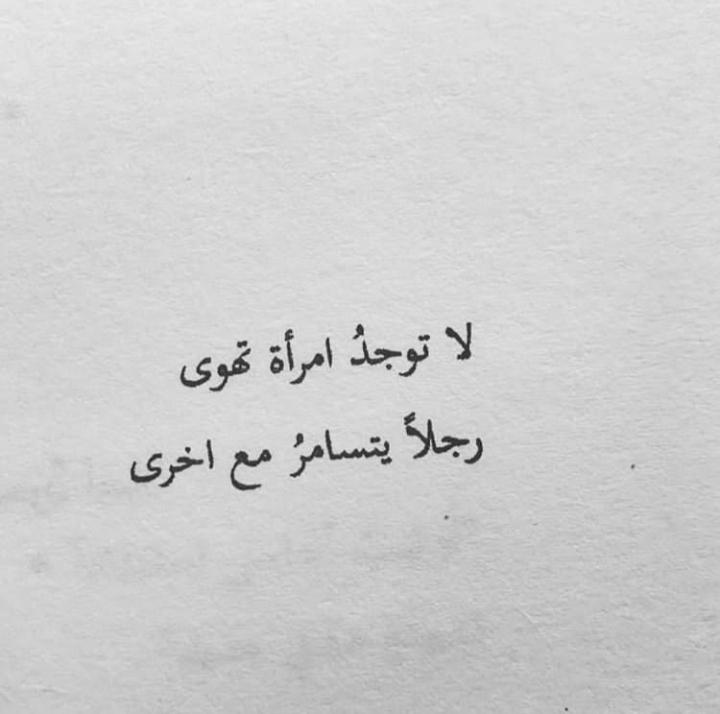 لا توجدُ امرأة تهوى
رجلاً يتسامرُ مع اخرى